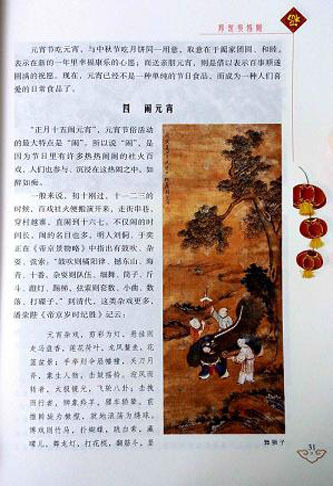 元宵节吃元宵，与中秋节吃月饼同一用意，取意在于阖家团圆、和睦，
表示在新的一年里幸福康乐的心愿；而送亲朋元宵，则是借以表示百事顺遂
圆满的祝愿。现在，元宵已经不是一种单纯的节日食品，而成为一种人们喜
爱的日常食品了。
四 闹元宵
“正月十五闹元宵”，元宵节俗活动
的最大特点是“闹”。所以说“闹”，是
因为节日里有许多热热闹闹的社火百
戏，人们也参与、沉浸在这热闹之中，如
醉如痴。
一般来说，初十刚过，十一二三的
时候，百戏社火便搬演开来，走街串巷，
穿村越寨，直闹到十六七，不仅闹的时
间长，闹的名目也多，明人刘侗、于奕
正在《帝京景物略》中指出有鼓吹、杂
耍、弦索：“鼓吹则橘阳律、撼东山、海
青、十番，杂耍则队伍、细舞、筒子、斤
斗、蹬灯、踢梯，弦索则套数、小曲、数
落、打碟子。”到清代，这类杂戏更多，
潘荣陛《帝京岁时纪胜》记云：
元宵杂戏，剪彩为灯。悬挂则
走马盘香，莲花荷叶，龙凤鳌鱼，花
篮盆景；手举则伞扇幡幢，关刀月
斧，象生人物，击鼓摇铃。迎风而
转者，太极镜光，飞轮八卦；击拽
而行者，狮象羚羊，骡车轿辇。前
推斡旋为橄榄，就地滚荡为绣球。
博戏则骑竹马，扑蝴蝶，跳白索，藏
嚎儿，舞龙灯，打花棍，翻筋斗，竖
舞狮子
31